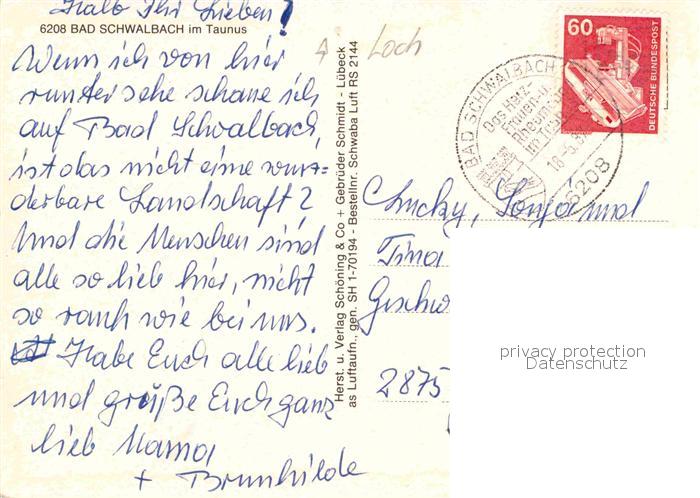 Hallo Ihr Lieben!
6208 BAD SCHWALBACH im Taunus
Wenn ich von hier
runter sehe schaue ich
auf Bad Schwalbach,
ist das nicht eine wun=
derbare Landschaft?
Und die Menschen sind
alle so lieb hier, nicht
so rauh wie bei uns.
Habe Euch alle lieb
und grüße Euch ganz
lieb Mama
+ Brunhilde
Herst. u. Verlag Schöning & Co + Gebrüder Schmidt - Lübeck
as Luftaufn., gen. SH 1-70194 - Bestellnr. Schwaba Luft RS 2144
Loch
60
DEUTSCHE BUNDESPOST
BAD SCHWALBACH
Das Herz-
Frauen-u
Rheuma
im Ta
6208
Lucky, Sonja und
Tina
Geschw
2875
privacy protection
Datenschutz